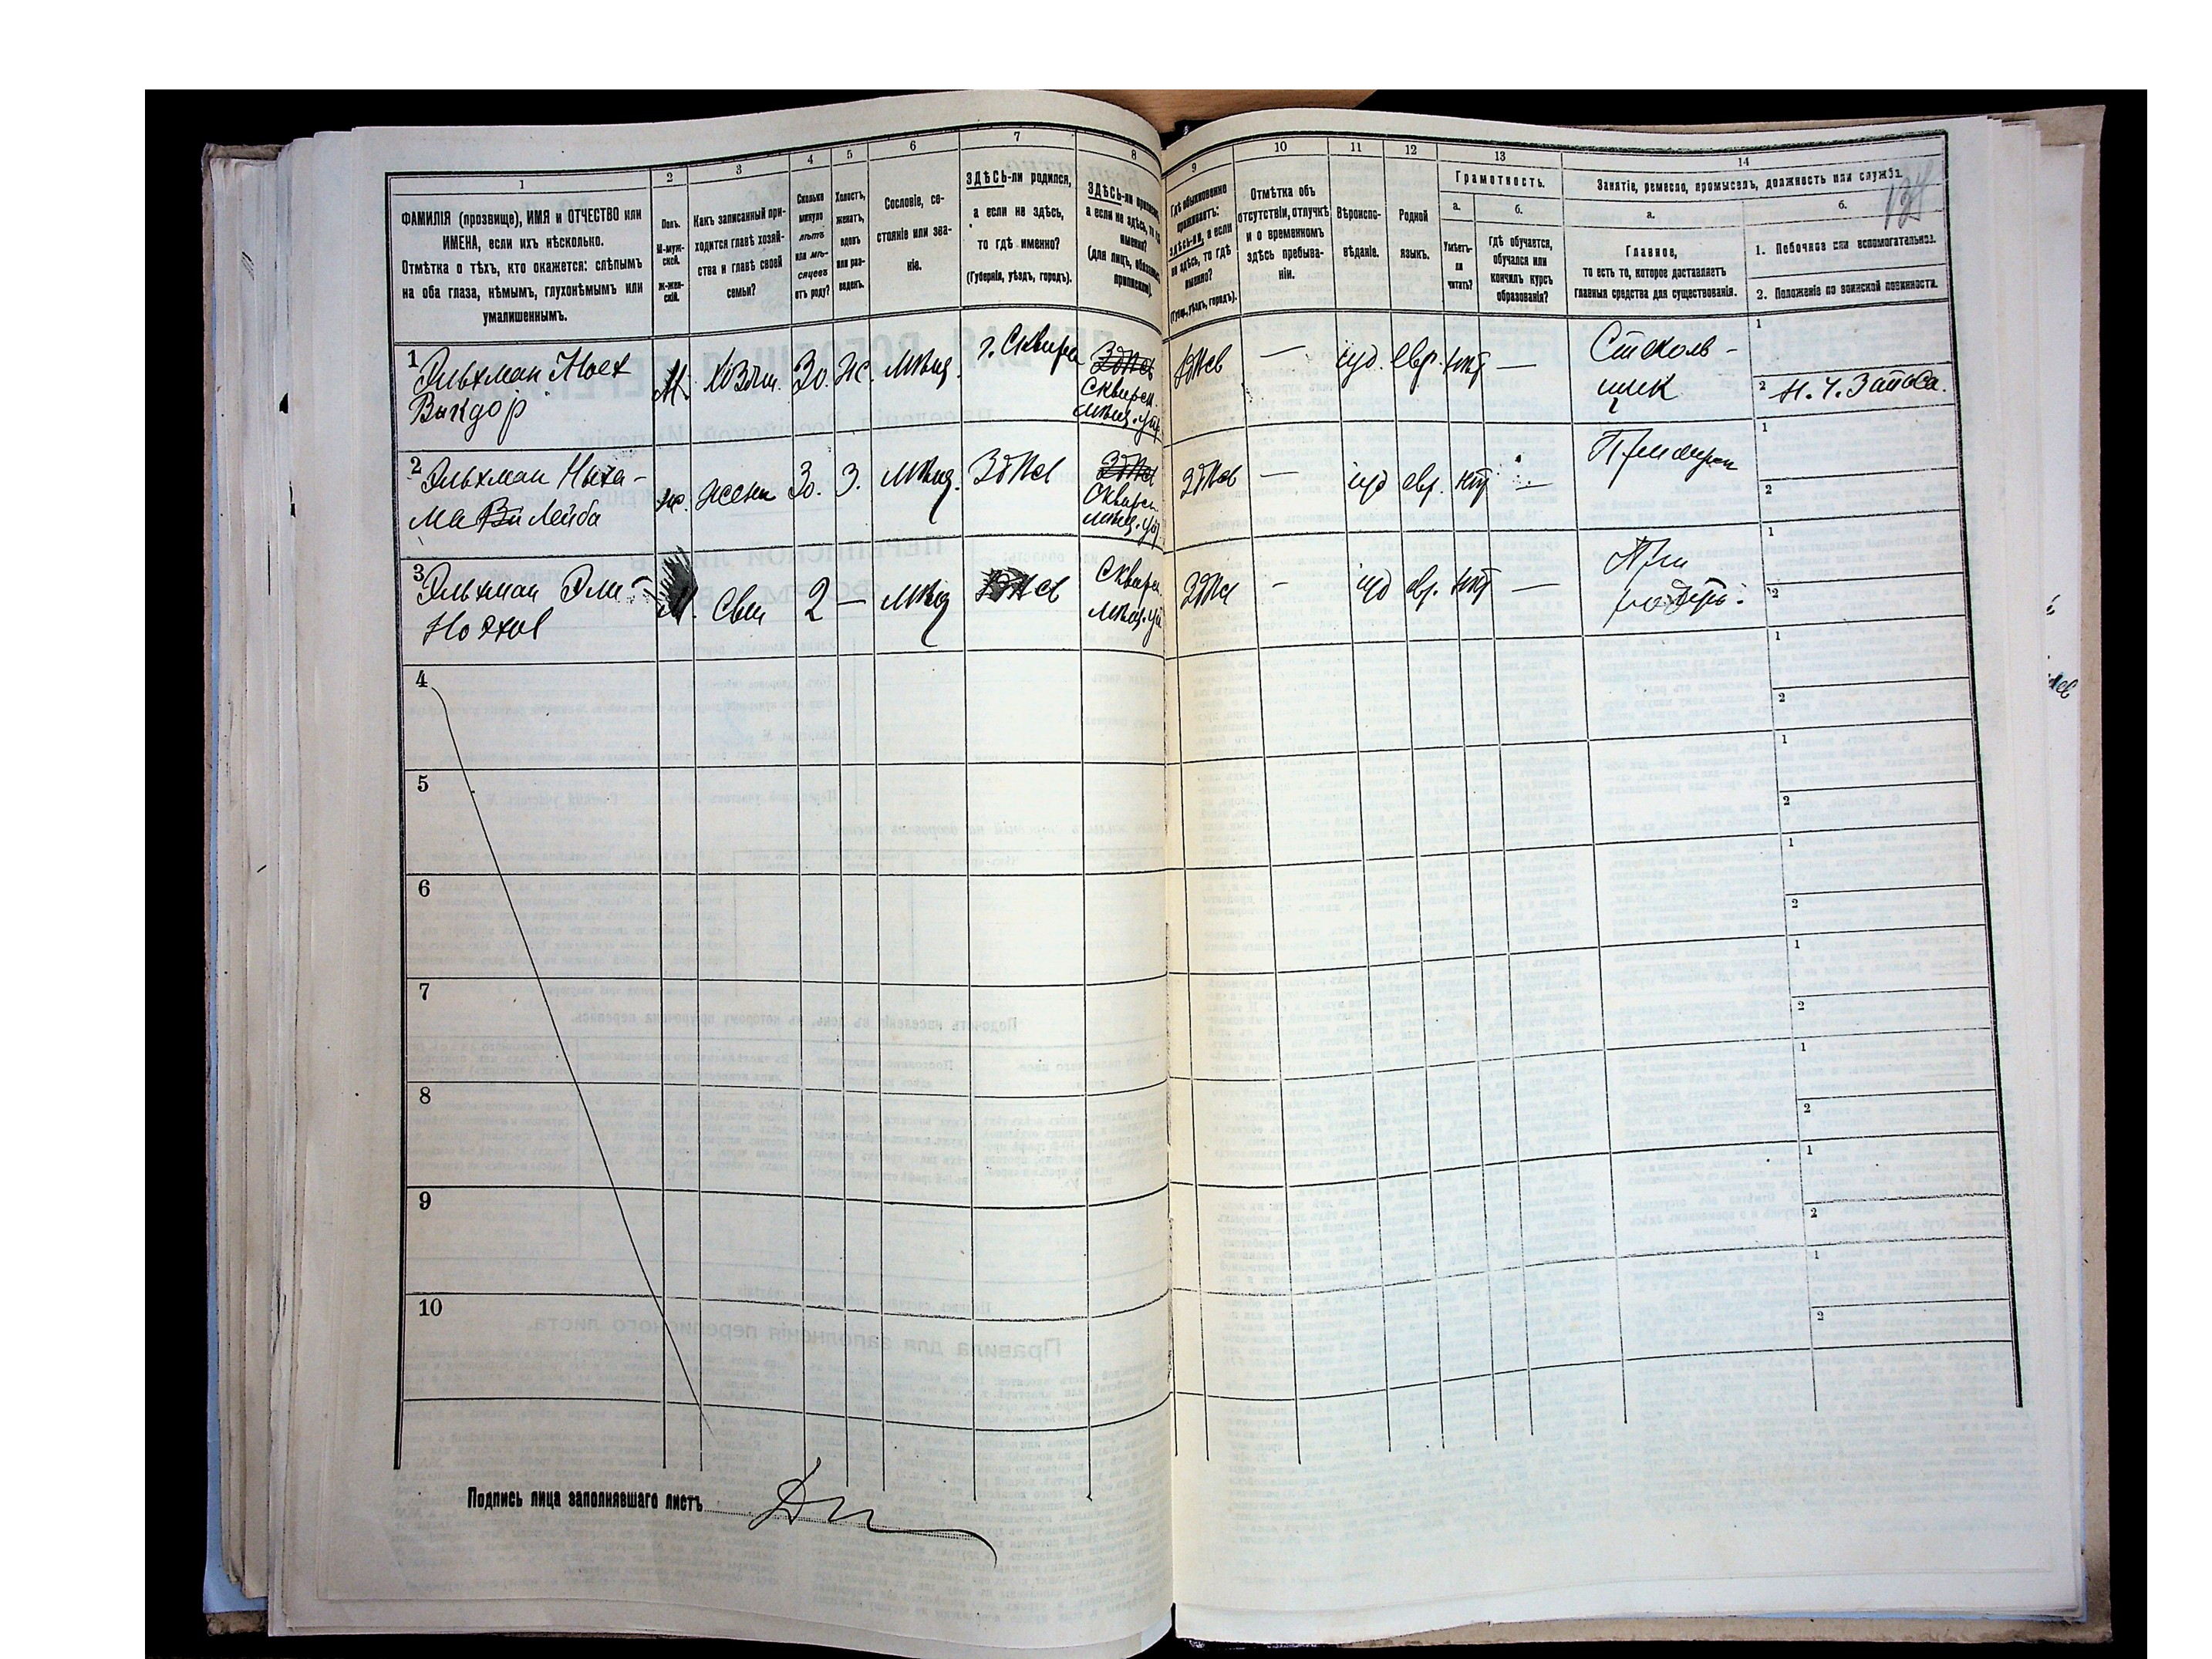 1
2
3
4
5
6
7
8
9
10
11
12
13
14
ФАМИЛІЯ (прозвище), ИМЯ и ОТЧЕСТВО или
ИМЕНА, если ихъ нѣсколько.
Отмѣтка о тѣхъ, кто окажется: слѣпымъ
на оба глаза, нѣмымъ, глухонѣмымъ или
умалишеннымъ.
Полъ.
М-муж-
ской.
Ж-жен-
скій.
Какъ записанный при-
ходится главѣ хозяй-
ства и главѣ своей
семьи?
Сколько
минуло
лѣтъ
или мѣ-
сяцевъ
отъ роду?
Холостъ,
женатъ,
вдовъ
или раз-
веденъ.
Сословіе, со-
стояніе или зва-
ніе.
ЗДѢСЬ-ли родился,
а если не здѣсь,
то гдѣ именно?
(Губернія, уѣздъ, городъ).
ЗДѢСЬ-ли
а если не здѣсь, то гдѣ
именно?
(для лицъ,
Гдѣ обыкновенно
проживаетъ:
здѣсь-ли, а если
не здѣсь, то гдѣ
именно?
(Губ., уѣздъ, городъ).
Отмѣтка объ
отсутствіи, отлучкѣ
и о временномъ
здѣсь пребыва-
ніи.
Вѣроиспо-
вѣданіе.
Родной
языкъ.
Грамотность.
а.
Умѣетъ-
ли
читать?
б.
Гдѣ обучается,
обучался или
кончилъ курсъ
образованія?
Занятіе, ремесло, промыселъ, должность или служба.
а.
Главное,
то есть то, которое доставляетъ
главныя средства для существованія.
б.
1. Побочное или вспомогательное.
2. Положеніе по воинской повинности.
1 Эльхман
М.
30.
Ж.
мѣщ.
г. Сквира
Сквирск.
мѣщ.
—
іуд.
евр.
нѣт
—
Стеколь-
щик
1
2
2 Эльхман
Лейба
жена
30.
З.
мѣщ.
Здѣсь
Сквирск.
мѣщ.
Здѣсь
—
іуд
евр.
нѣт
—
1
2
3 Эльхман
М.
Сын
2
—
мѣщ
Сквирск.
мѣщ.
Здѣсь
-
іуд
евр.
нѣт
—
При
1
2
4
1
2
5
1
2
6
1
2
7
1
2
8
1
2
9
1
2
10
1
2
Подпись лица заполнявшаго листъ